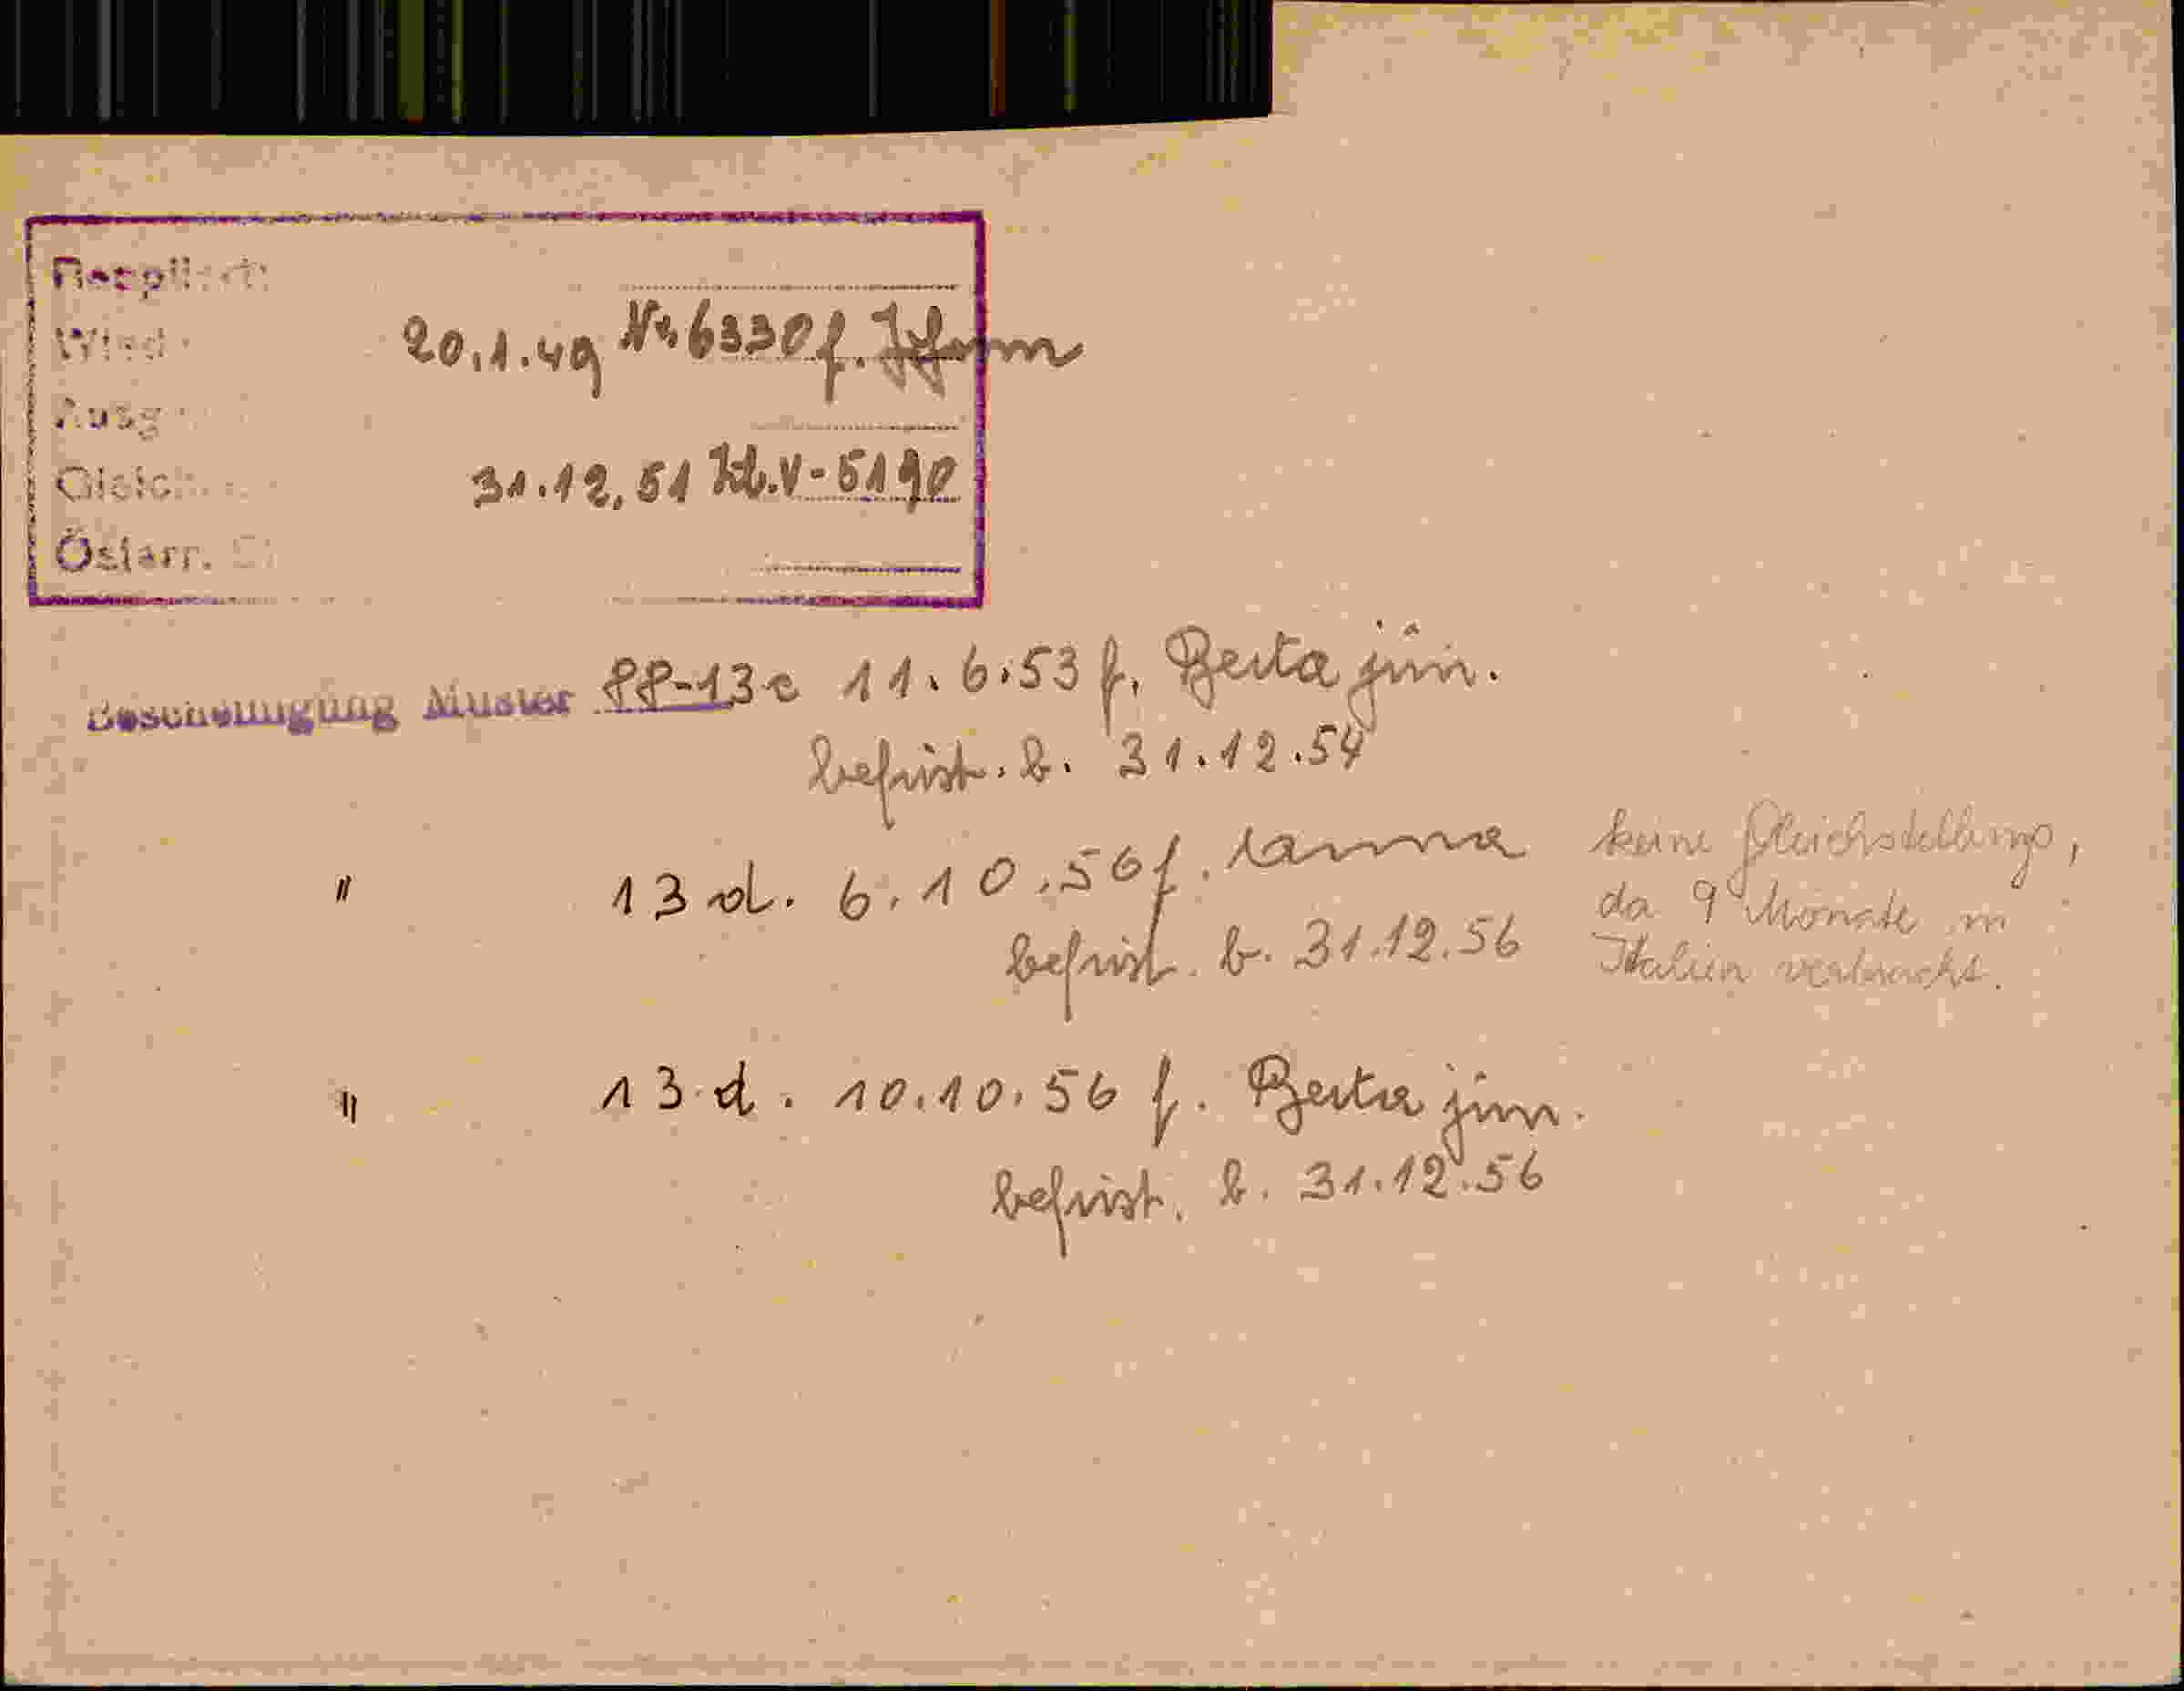 20.1.49 Nr. 6330 f. Johann
31.12.51 Zl. V-5190
Österr.
Bescheinigung Muster 88-13c 11.6.53 f. Berta jun.
befrist. b. 31.12.54
" 13d. 6.10.56 f. Anna
befrist. b. 31.12.56
keine Gleichstellung,
da 9 Monate in
Italien verbracht.
" 13d. 10.10.56 f. Berta jun.
befrist. b. 31.12.56